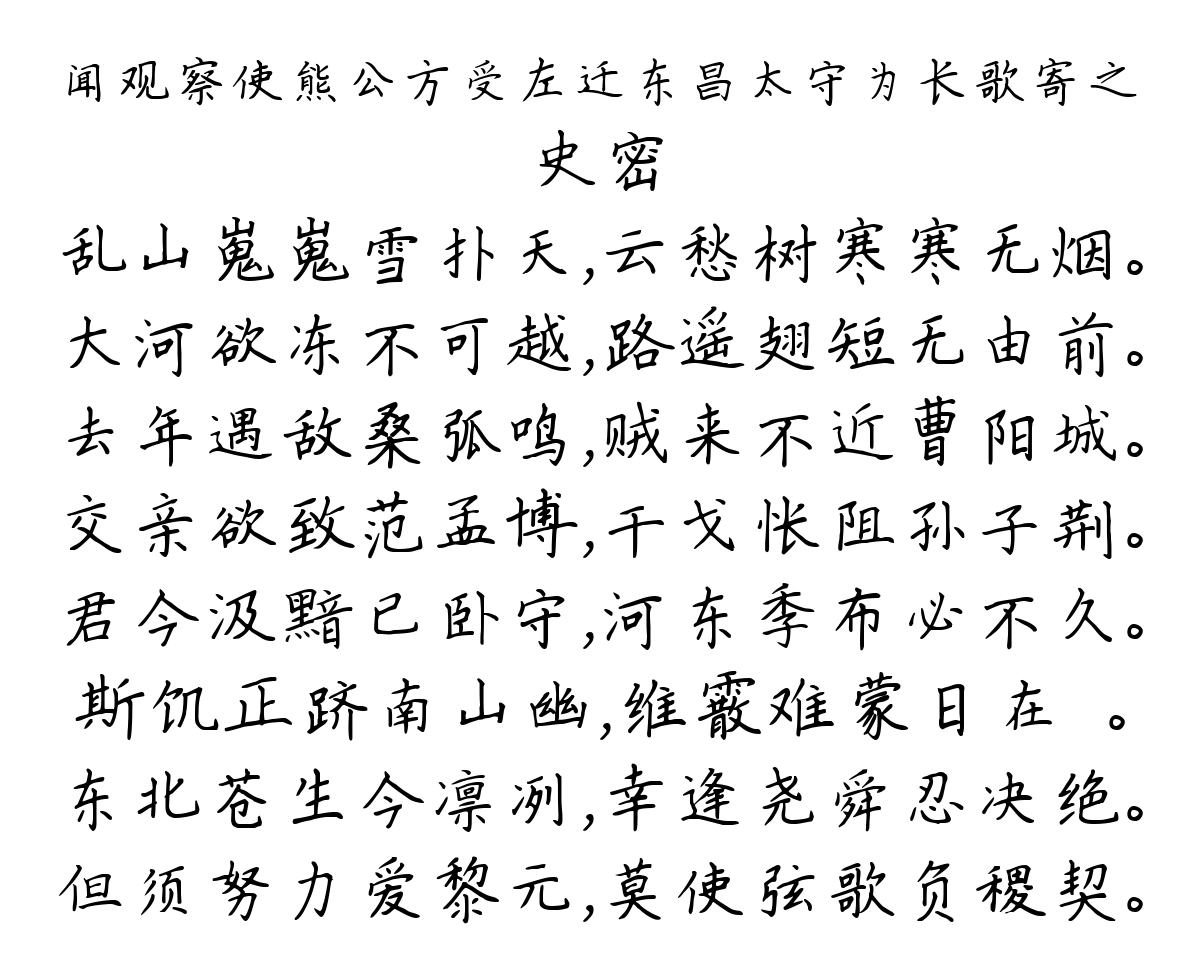 闻观察使熊公方受左迁东昌太守为长歌寄之
史密
乱山嵬嵬雪扑天,云愁树寒寒无烟。
大河欲冻不可越,路遥翅短无由前。
去年遇敌桑弧鸣,贼来不近曹阳城。
交亲欲致范孟博,干戈怅阻孙子荆。
君今汲黯已卧守,河东季布必不久。
斯饥正跻南山幽,维霰难蒙日在 。
东北苍生今凛冽,幸逢尧舜忍决绝。
但须努力爱黎元,莫使弦歌负稷契。